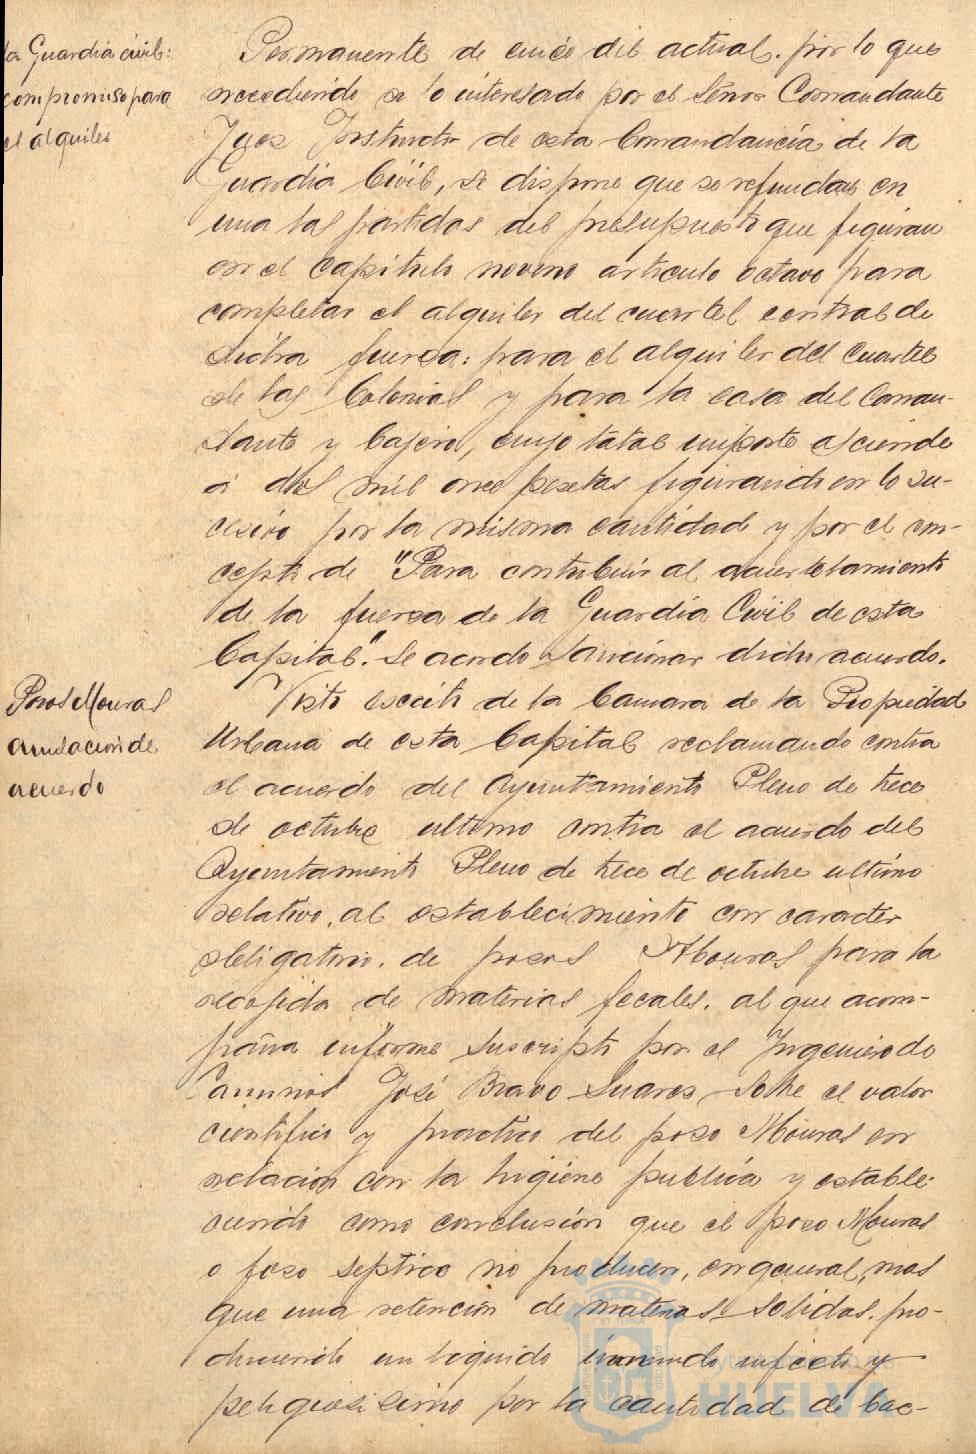 la Guardia civil:
compromiso para
el alquiler
Permanente de cinco del actual. por lo que
accediendo a lo interesado por el Señor Comandante
Juez Instructor de esta Comandancia de la
Guardia Civil, se dispone que se refundan en
una las partidas del presupuesto que figuran
en el capitulo noveno articulo octavo para
completar el alquiler del cuartel central de
dicha fuerza: para el alquiler del Cuartel
de las Colonias y para la casa del Coman-
dante y Cajero, cuyo total importe asciende
a dos mil once pesetas figurando en lo su-
cesivo por la misma cantidad y por el con-
cepto de "Para contribuir al acuartelamiento
de la fuerza de la Guardia Civil de esta
Capital." Se acordo sancionar dicho acuerdo.
Pozos Mouras
anulacion de
acuerdo
Visto escrito de la Camara de la Propiedad
Urbana de esta Capital reclamando contra
el acuerdo del Ayuntamiento Pleno de trece
de octubre ultimo contra el acuerdo del
Ayuntamiento Pleno de trece de octubre ultimo
relativo, al establecimiento con caracter
obligatorio. de pozos Mouras para la
recogida de materias fecales. al que acom-
paña informe suscripto por el Ingeniero de
Caminos José Bravo Suarez sobre el valor
cientifico y practico del pozo Mouras en
relación con la higiene publica y estable-
ciendo como conclusión que el pozo Mouras
o foso septico no producen, en general, mas
que una retencion de materias solidas. pro-
duciendo un liquido inmundo infecto y
peligrosisimo por la cantidad de bac-
Ayuntamiento de
HUELVA